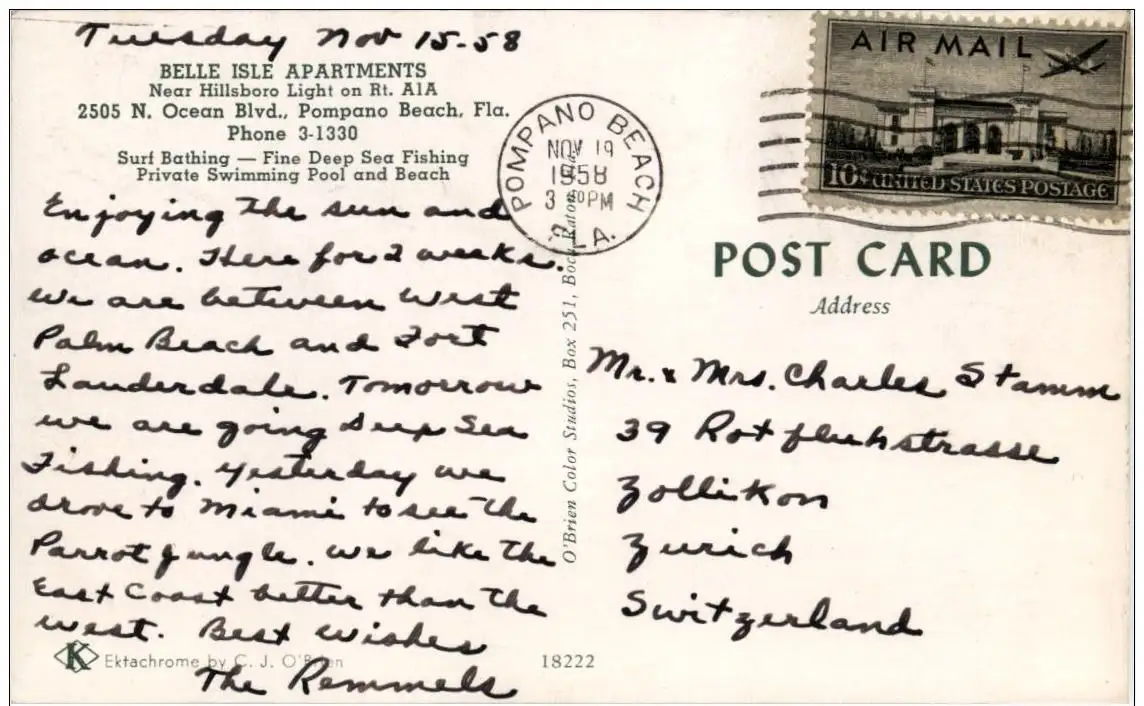 Tuesday Nov 15-58
BELLE ISLE APARTMENTS
Near Hillsboro Light on Rt. A1A
2505 N. Ocean Blvd., Pompano Beach, Fla.
Phone 3-1330
Surf Bathing — Fine Deep Sea Fishing
Private Swimming Pool and Beach
Enjoying the sun and
ocean. Here for 2 weeks.
We are between West
Palm Beach and Fort
Lauderdale. Tomorrow
we are going Deep Sea
Fishing. Yesterday we
drove to Miami to see the
Parrot Jungle. We like the
East Coast better than the
west. Best wishes
The Remmels
K Ektachrome by C. J. O'Brien
18222
O'Brien Color Studios, Box 251, Boca Raton, Fla.
POMPANO BEACH
NOV 19
1958
3 PM
FLA.
AIR MAIL
10¢ UNITED STATES POSTAGE
POST CARD
Address
Mr. & Mrs. Charles Stamm
39 Rotfluhstrasse
Zollikon
Zurich
Switzerland